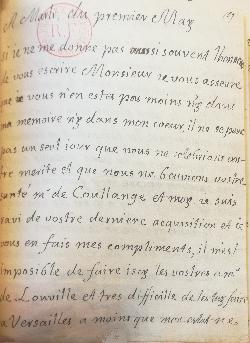 A Marli du premier May
si ie ne me donne pas aussi souvent l'honneur
de vous escrire Monsieur ie vous asseure
que vous n'en estes pas moins n'y dans
ma memoire n'y dans mon coeur, il ne se passe
pas un seul jour que nous ne celebrions vos-
tre merite et que nous ne beuvions vostre
santé mr de Coullange et moy ie suis
ravi de vostre derniere acquisition et ie
vous en fais mes compliments, il m'est
imposible de faire icy les vostres a mr
de Louville et tres difficille de les luy faire
a Versailles a moins que mon